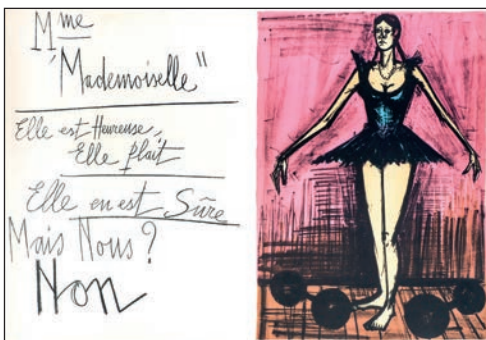 Mme
"Mademoiselle"
Elle est Heureuse,
Elle plait
Elle en est Sûre
Mais Nous ?
Non